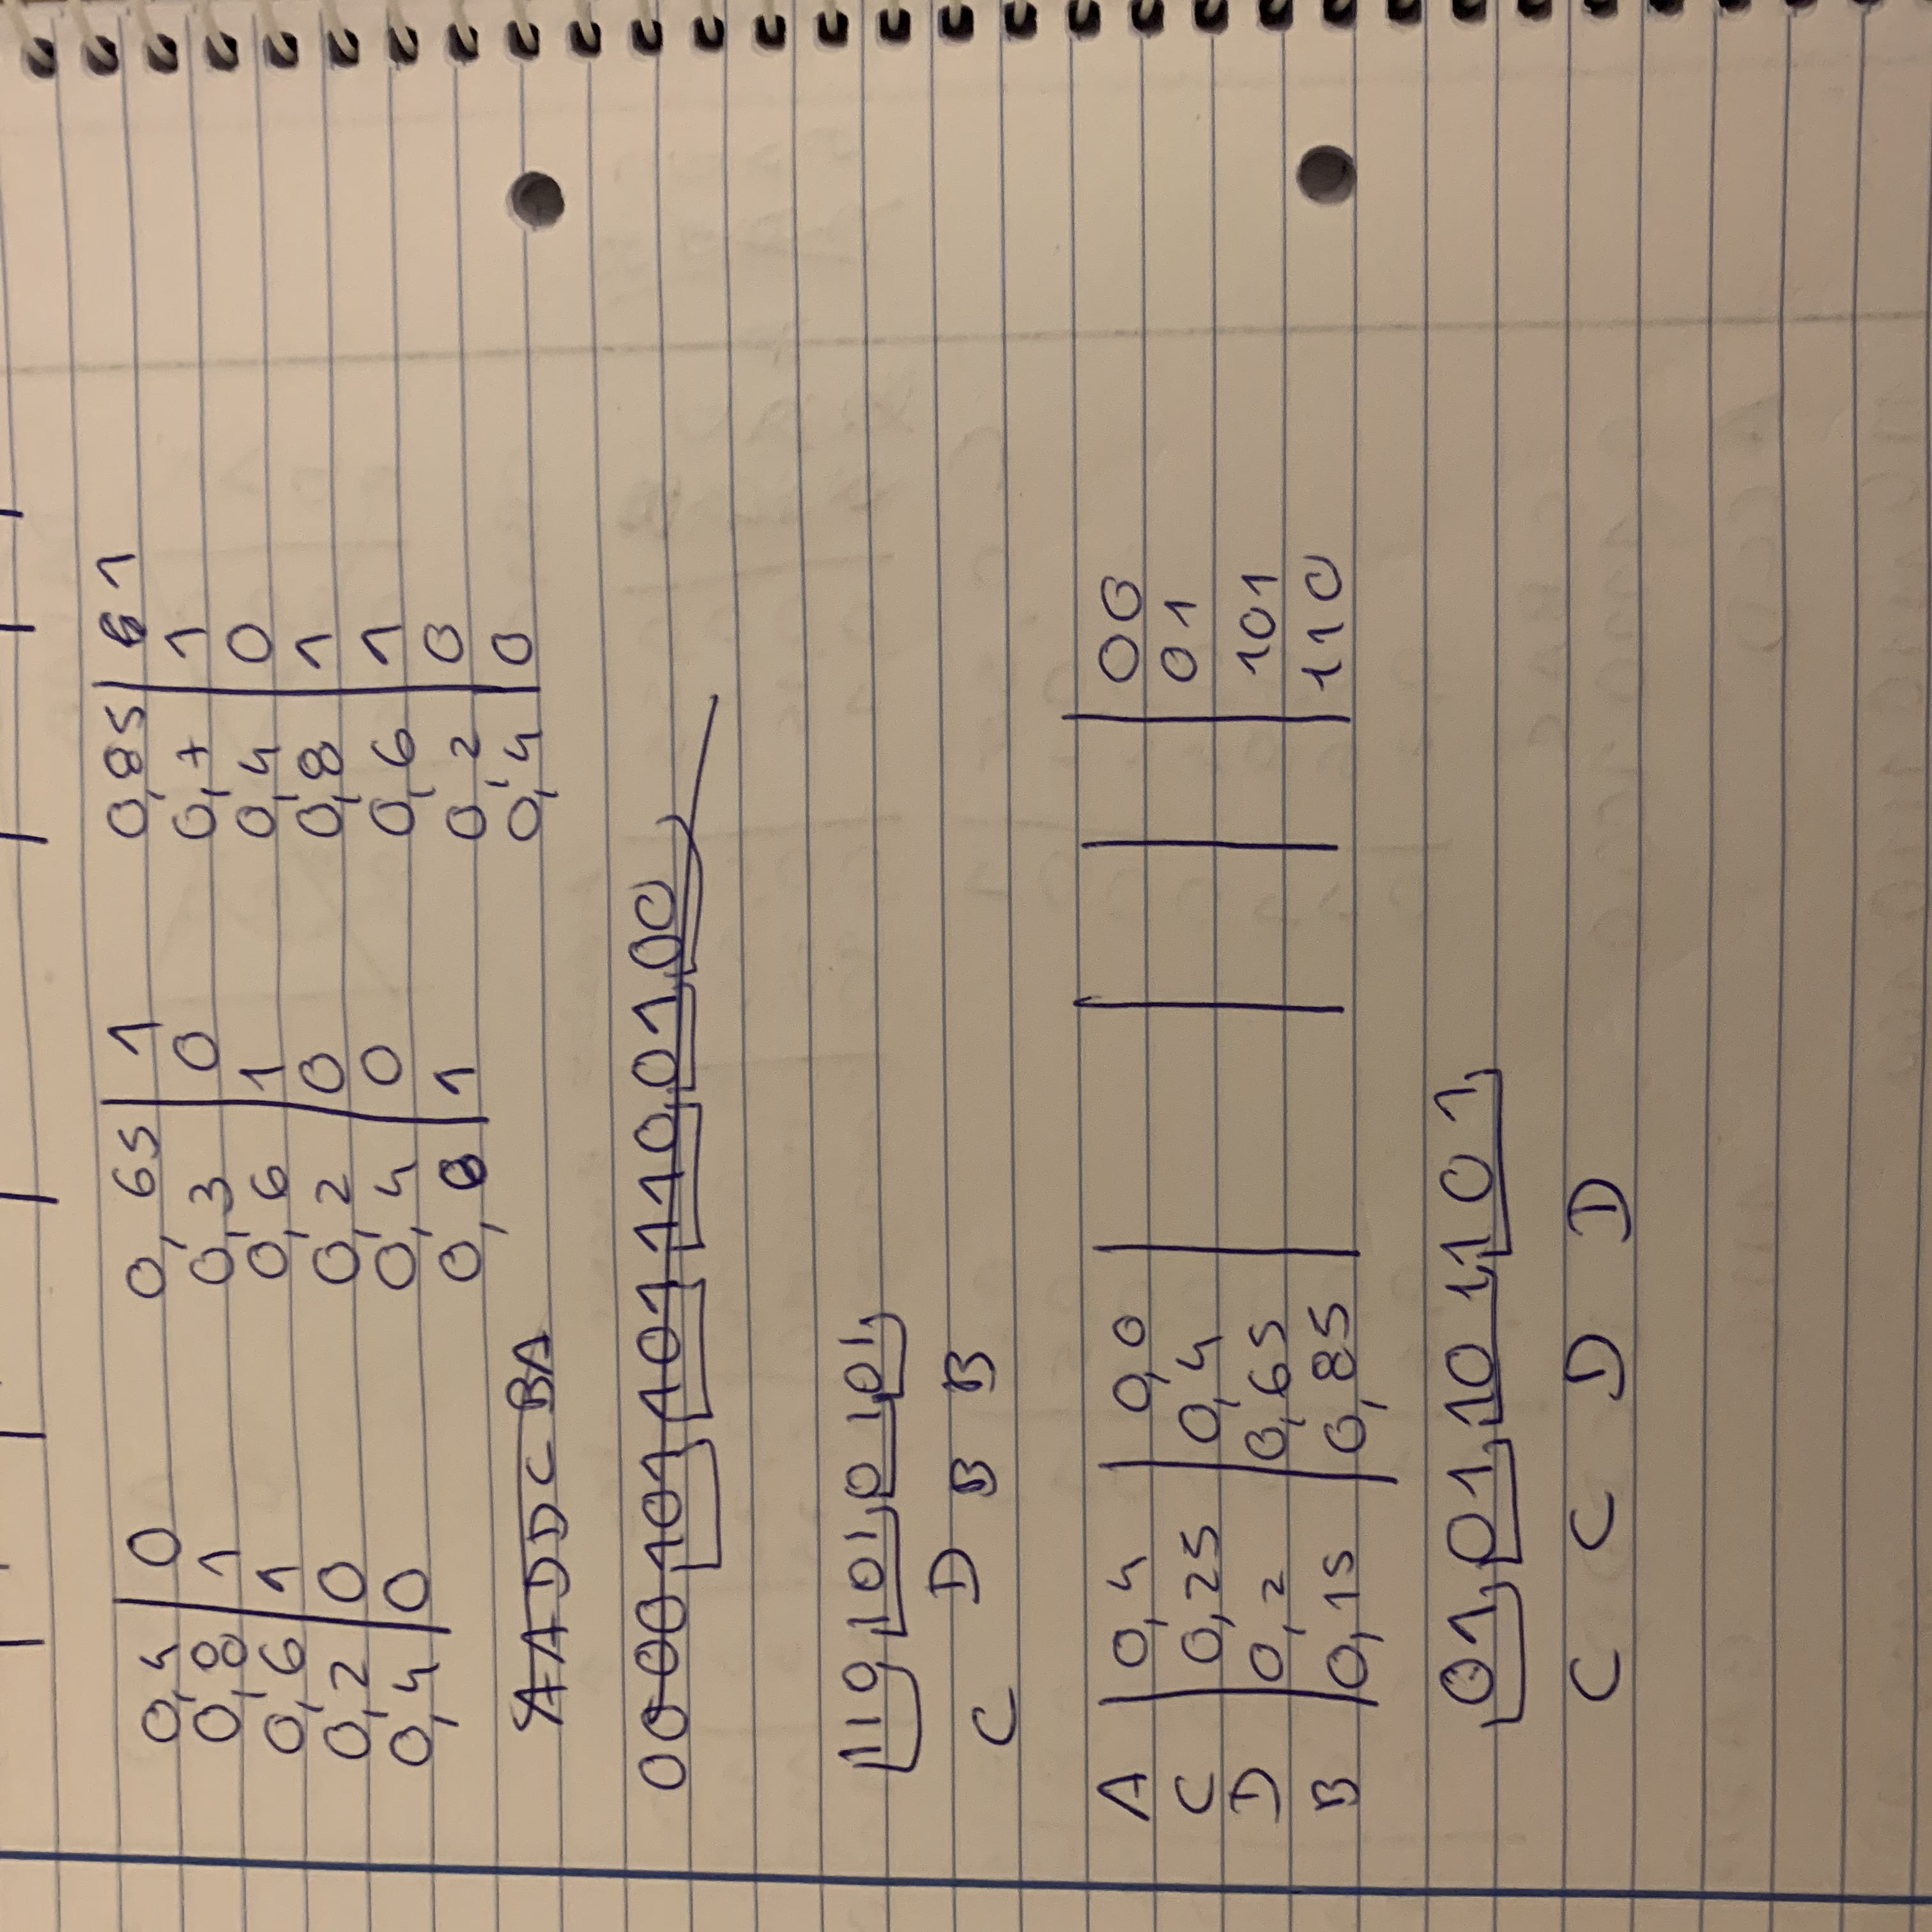 0,4 | 0 0,65 | 1 0,85 | 1
0,8 | 1 0,3 | 0 0,7 | 1
0,6 | 1 0,6 | 1 0,4 | 0
0,2 | 0 0,2 | 0 0,8 | 1
0,4 | 0 0,4 | 0 0,6 | 1
0,8 | 1 0,2 | 0
0,4 | 0
AADDCBA
0000101101110,01,00
110 101 01 01
C D B B
A | 0,4 | 0,0 | | | | 00
C | 0,25 | 0,4 | | | | 01
D | 0,2 | 0,65 | | | | 101
B | 0,15 | 0,85 | | | | 110
01 01 101 101
C C D D